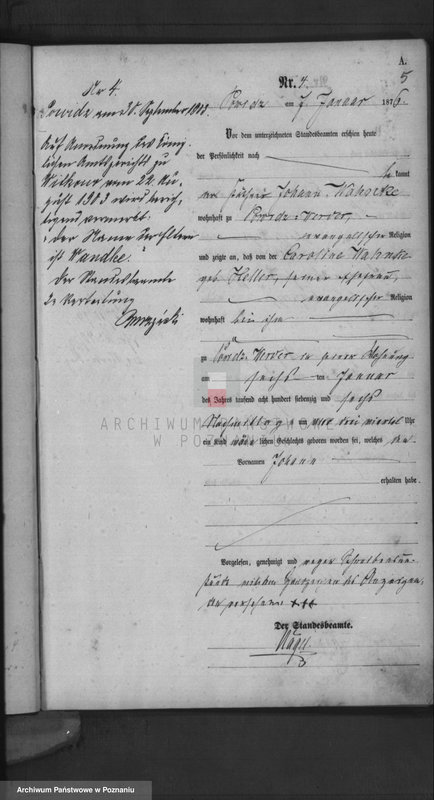 A.
5
Nr. 4.
Powidz am 7 Januar 1876.
Vor dem unterzeichneten Standesbeamten erschien heute
der Persönlichkeit nach
be kannt
Johann
wohnhaft zu Powidz-Werder
evangelischer Religion
und zeigte an, daß von der Caroline
geb. Heller, seiner Ehefrau,
evangelischer Religion
wohnhaft bei ihm
zu Powidz-Werder in seiner Wohnung
am sechs ten Januar
des Jahres tausend acht hundert siebenzig und sechs
Nachmittags um drei viertel Uhr
ein Kind männ lichen Geschlechts geboren worden sei, welches den
Vornamen Johann
erhalten habe.
Vorgelesen, genehmigt und wegen
mit dem Handzeichen des
versehen +++
Der Standesbeamte.
Nr 4.
Powidz am 30. September 1903.
Auf Anordnung des König
lichen Amtsgerichts zu
Witkowo vom 22. Au
gust 1903 wird berich
tigend vermerkt:
der Name der Eltern
ist "Wandke."
Der Standesbeamte
In Vertretung
ARCHIWUM PAŃSTWOWE
W POZNANIU
Archiwum Państwowe w Poznaniu